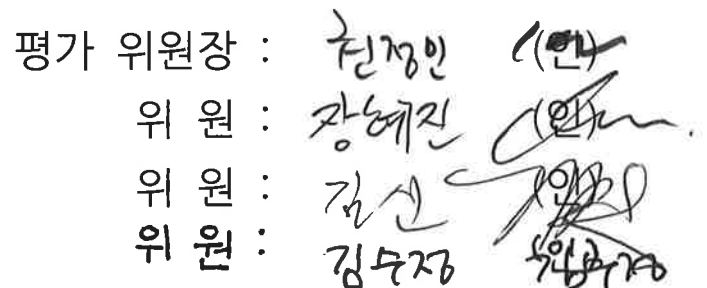 평가 위원장 : 천정인 (인)
위 원 : 장혜진 (인)
위 원 : 김신 (인)
위 원 : 김수정